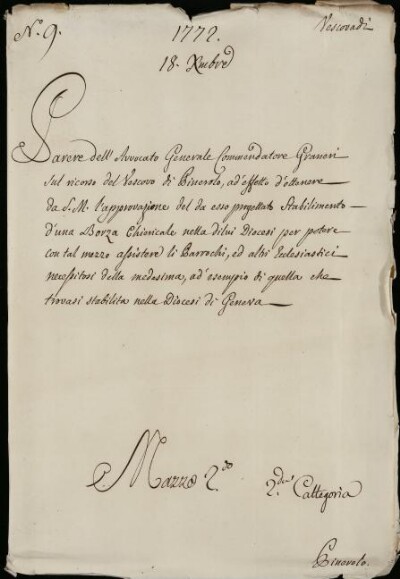 N.° 9.
1772.
Vescovadi
18. Xmbre
Parere dell' Avvocato Generale Commendatore Graneri
sul ricorso del Vescovo di Pinerolo, ad' effetto d'ottenere
da S. M. l'approvazione del da esso progettato Stabilimento
d'una Borza Chiericale nella di lui Diocesi per potere
con tal mezzo assistere li Parrochi, ed altri Ecclesiastici
necessitosi della medesima, ad' esempio di quella che
trovasi stabilita nella Diocesi di Geneva
Mazzo 2.do
2.da Cattegoria
Pinerolo.